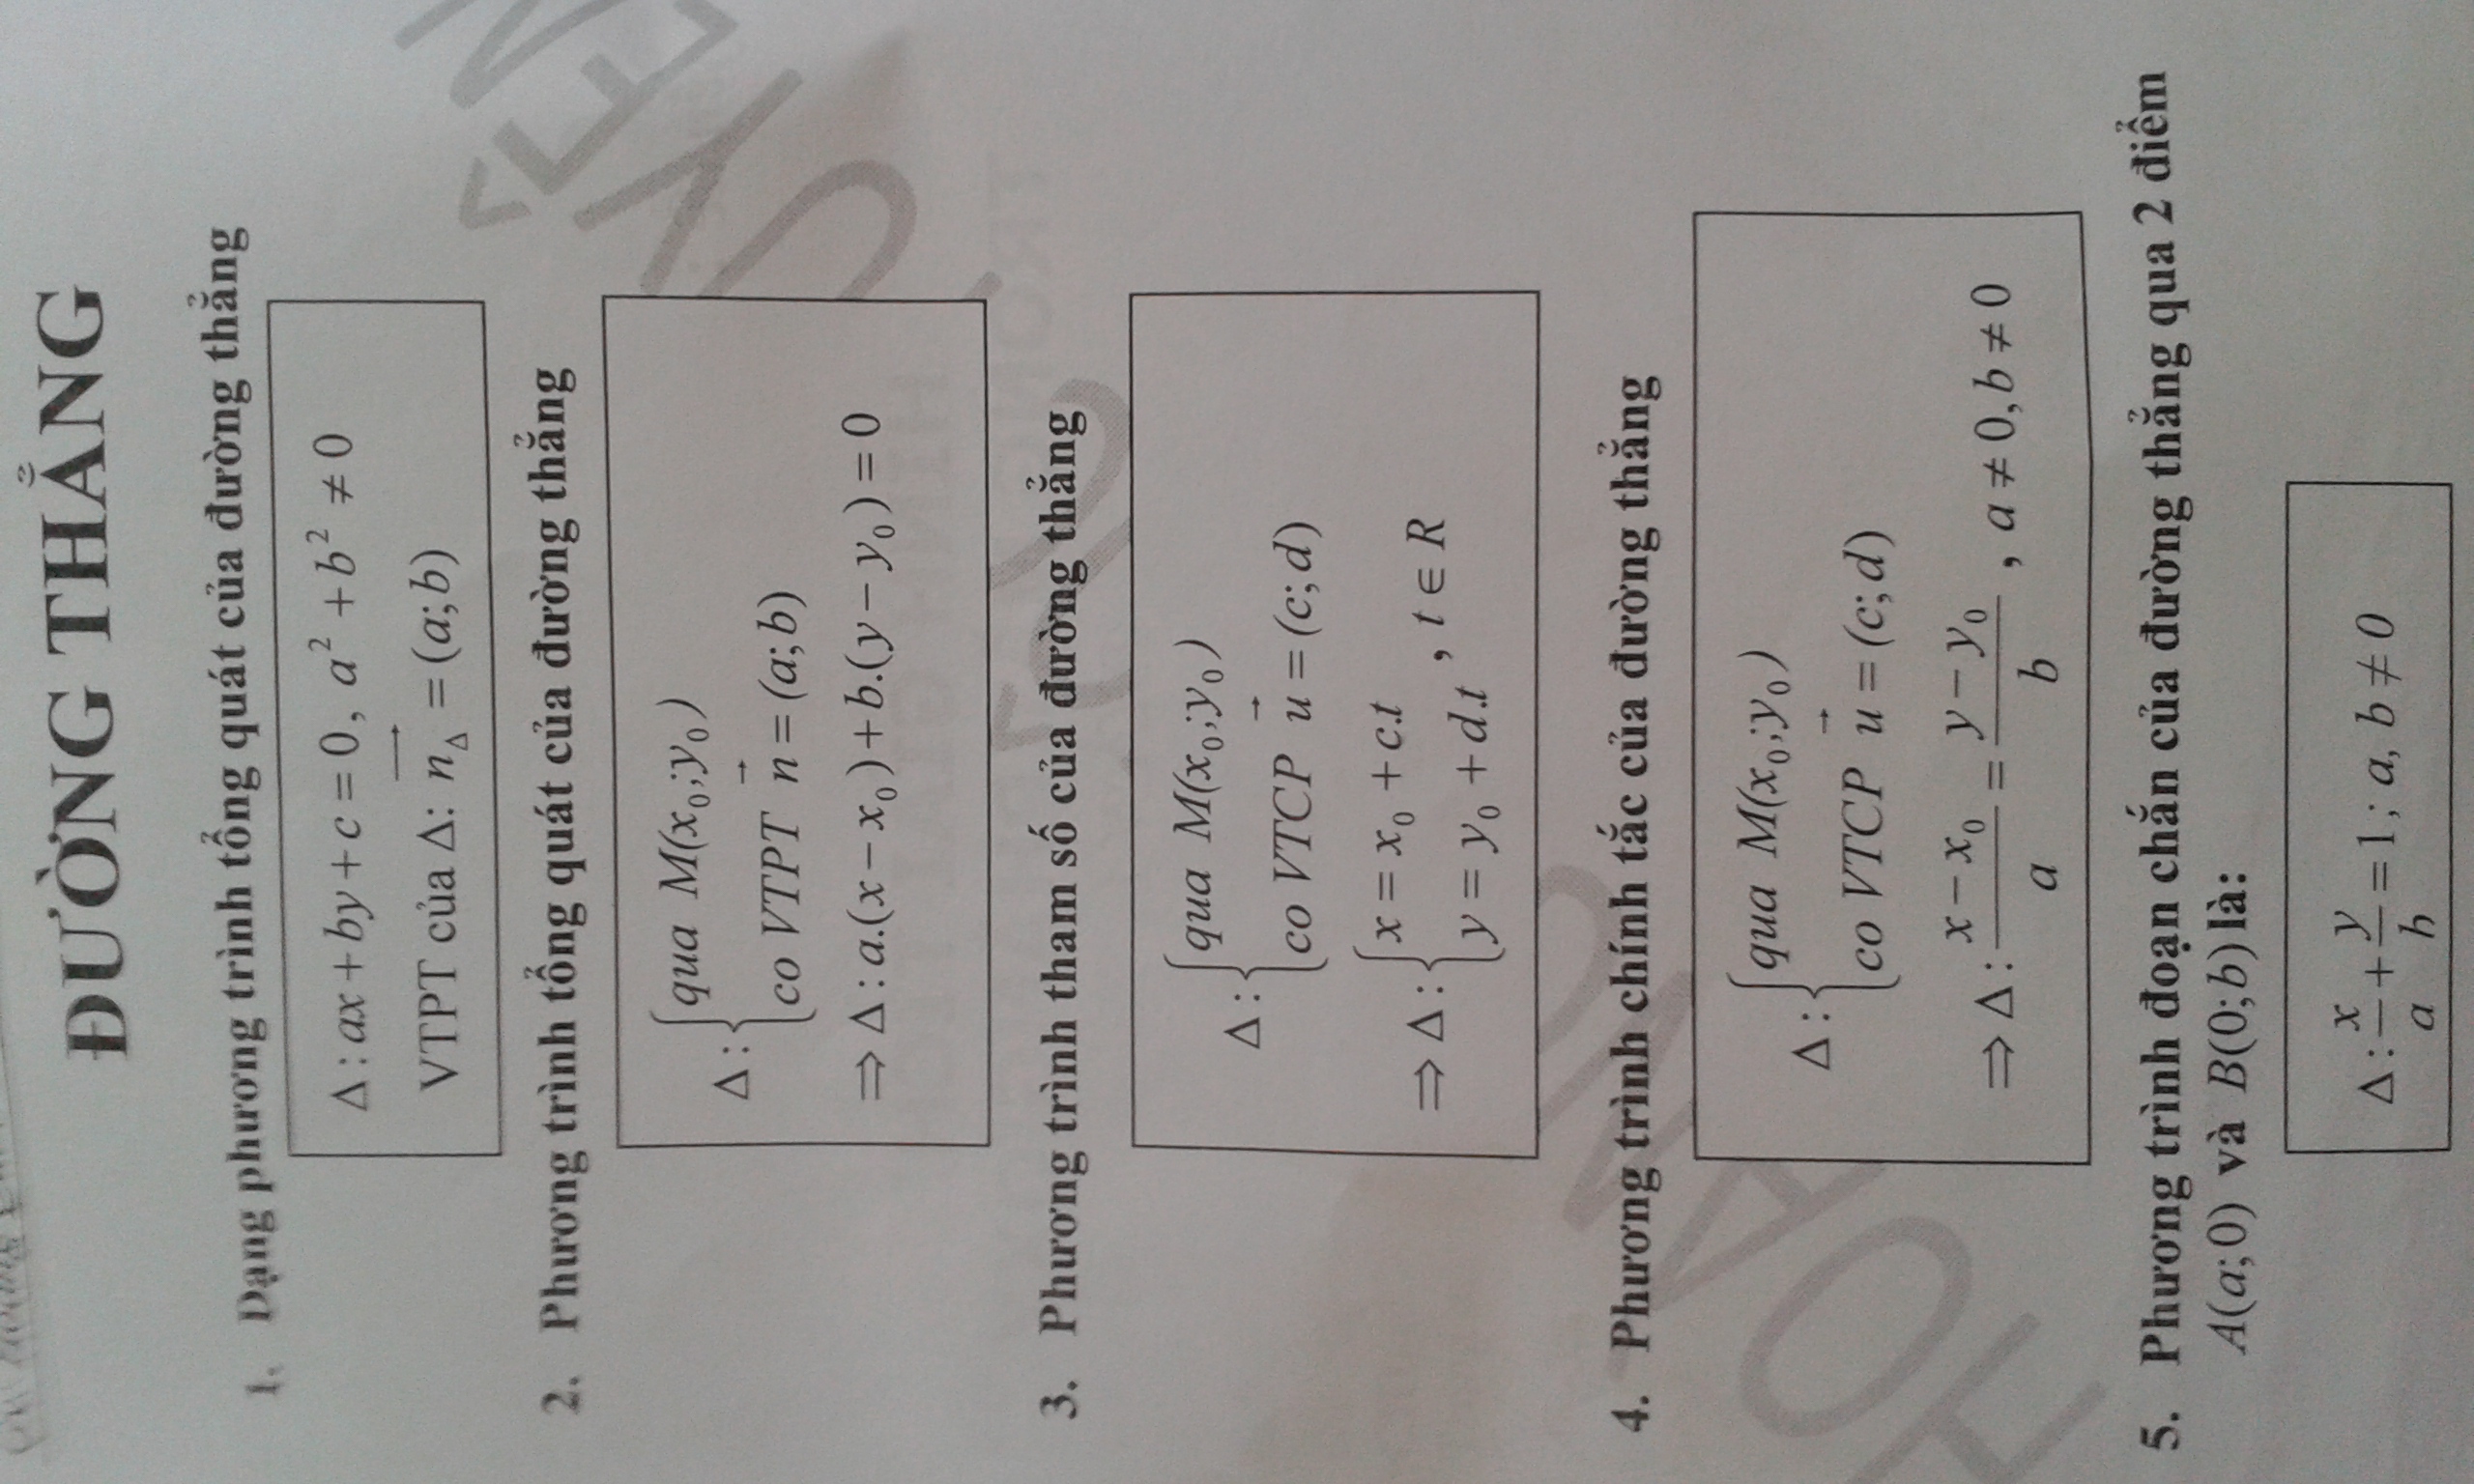 ĐƯỜNG THẲNG
1. Dạng phương trình tổng quát của đường thẳng
Δ : ax + by + c = 0, a² + b² ≠ 0
VTPT của Δ: n⃗_Δ = (a;b)
2. Phương trình tổng quát của đường thẳng
Δ : { qua M(x₀;y₀)
co VTPT n⃗ = (a;b)
⇒ Δ : a.(x − x₀) + b.(y − y₀) = 0
3. Phương trình tham số của đường thẳng
Δ : { qua M(x₀;y₀)
co VTCP u⃗ = (c;d)
⇒ Δ : { x = x₀ + c.t
y = y₀ + d.t , t ∈ R
4. Phương trình chính tắc của đường thẳng
Δ : { qua M(x₀;y₀)
co VTCP u⃗ = (c;d)
⇒ Δ : (x − x₀)/a = (y − y₀)/b , a ≠ 0, b ≠ 0
5. Phương trình đoạn chắn của đường thẳng qua 2 điểm
A(a;0) và B(0;b) là:
Δ : x/a + y/b = 1 ; a, b ≠ 0